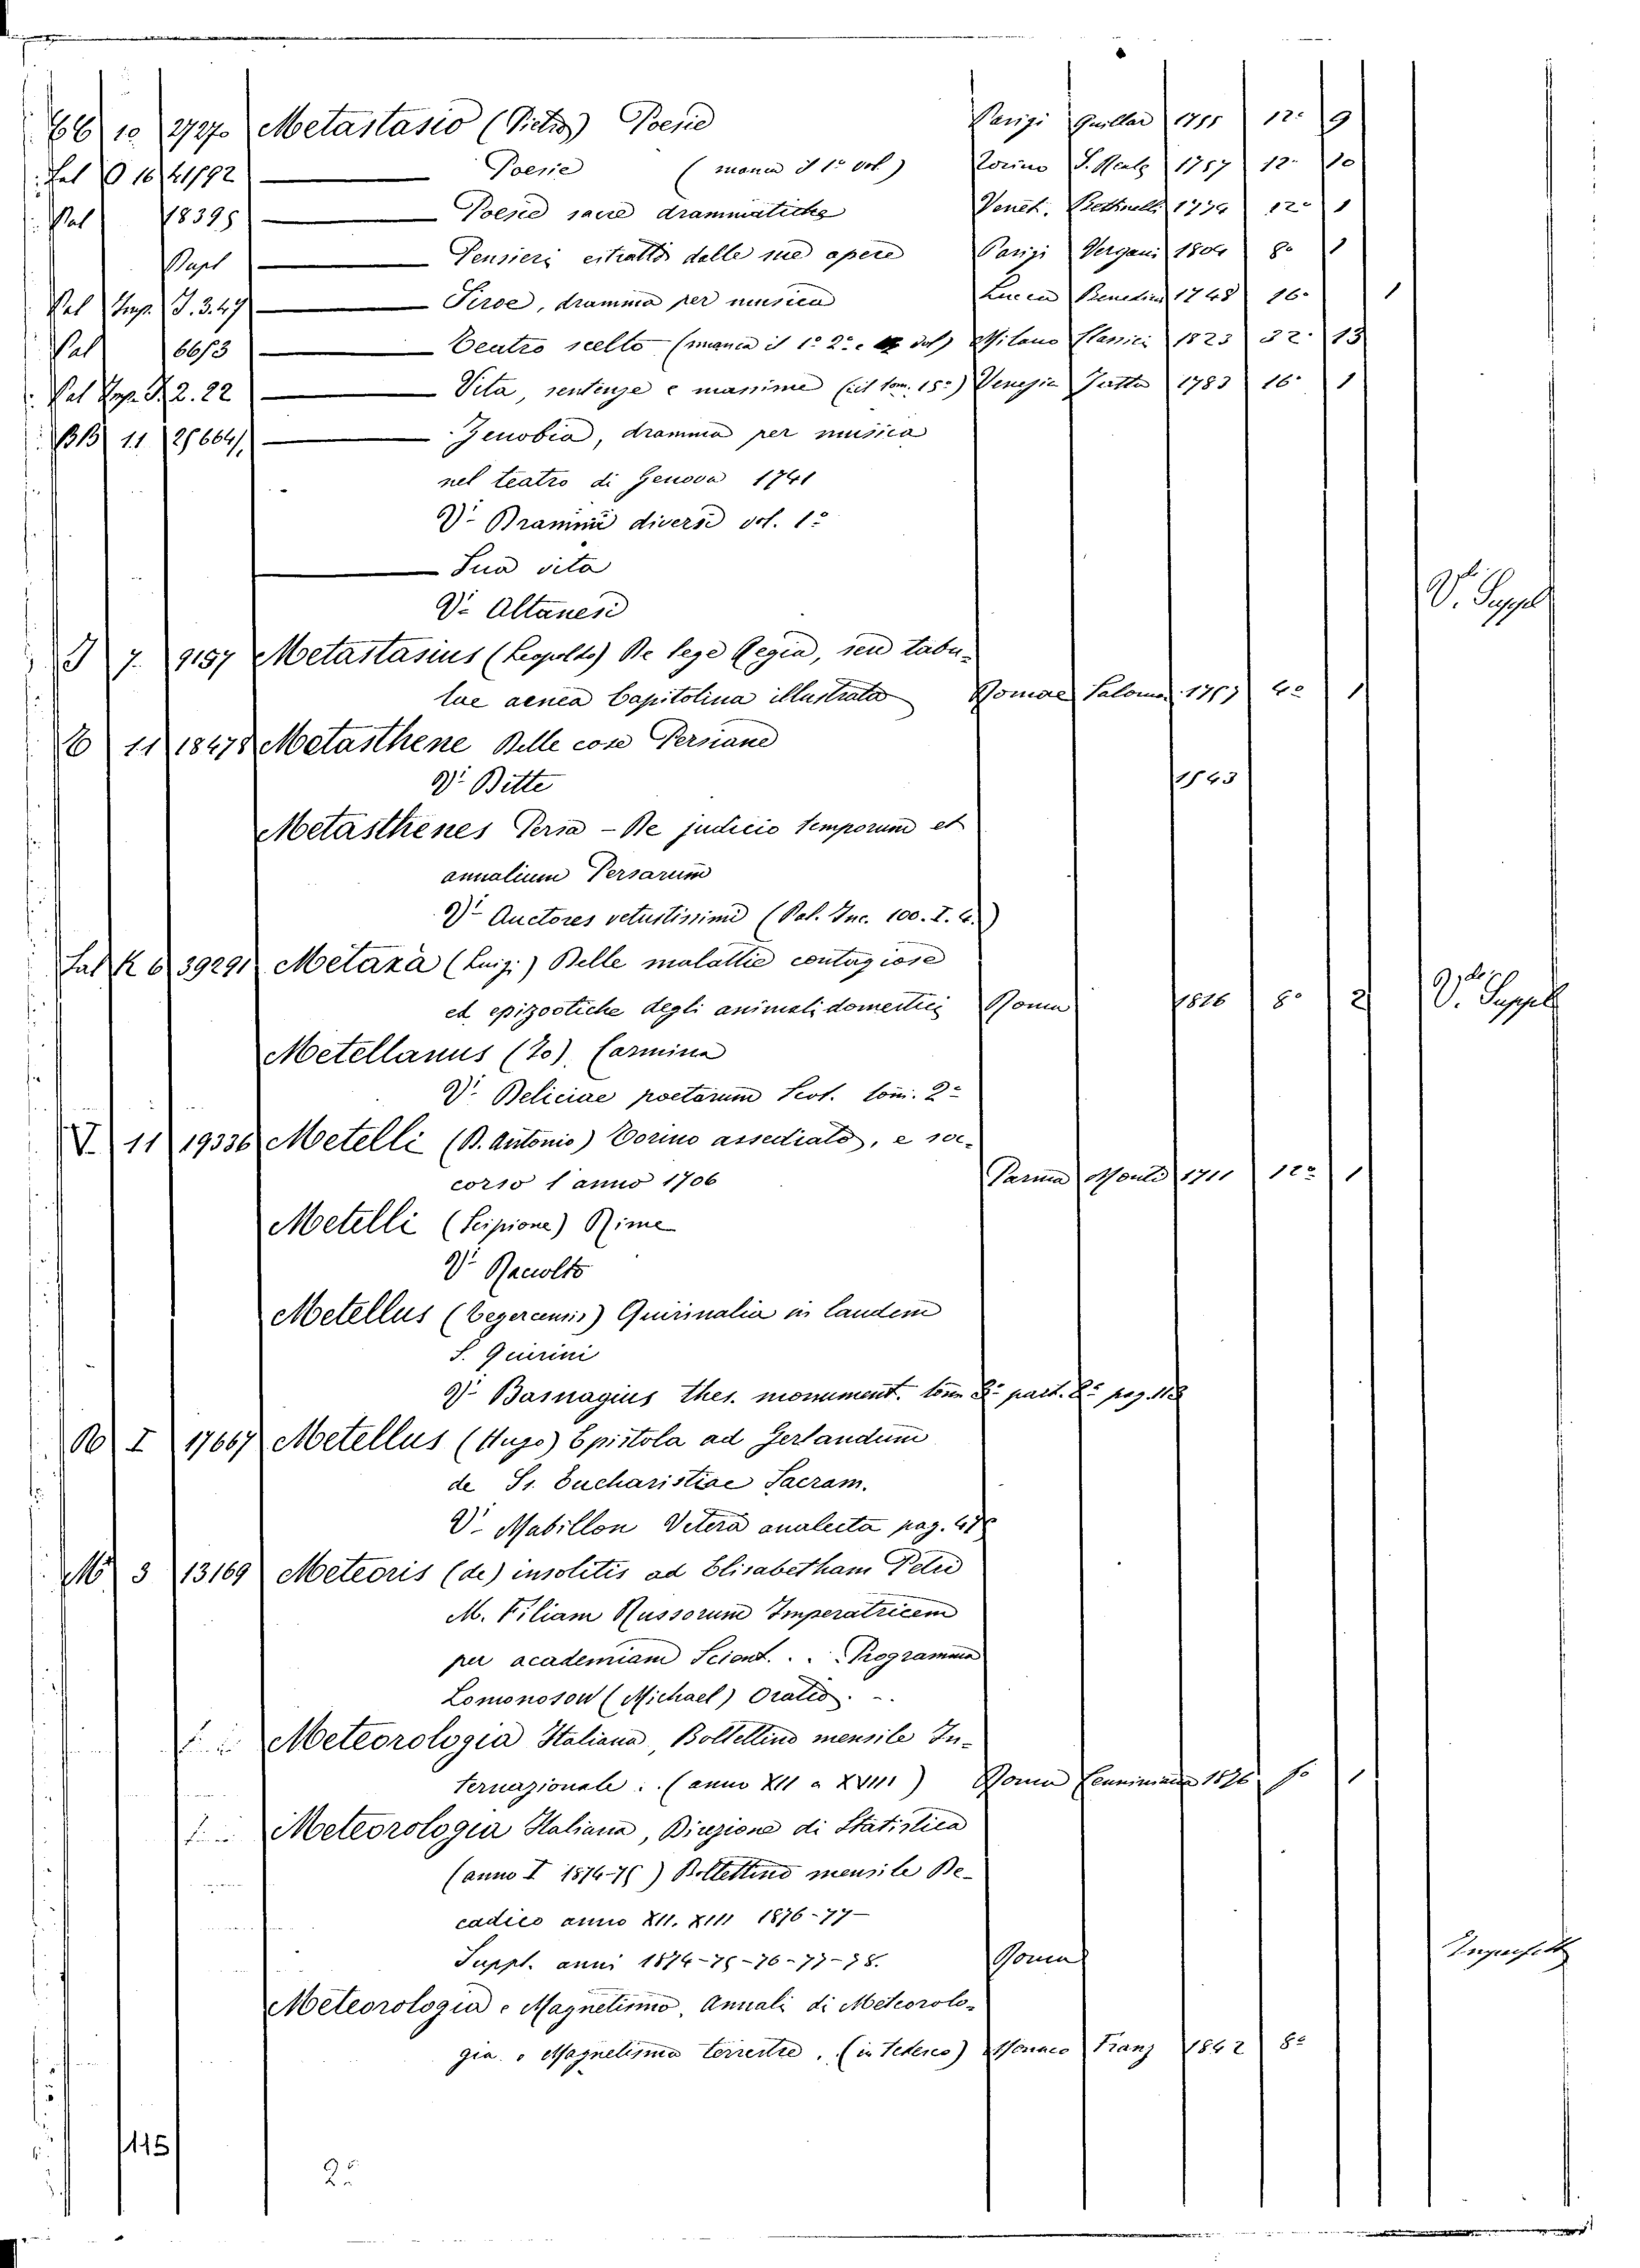 10 27270 Metastasio (Pietro) Poesie Parigi Quillau 1755 12º 9
16 41792 Poesie (manca il 1º vol.) Torino S. Reale 1757 12º 10
Pal 18395 Poesie sacre drammatiche Venet. Bettinelli 12º 1
Pensieri estratti dalle sue opere Parigi Vergani 1804 8º 1
Pal Imp. J. 3. 47 Siroe, dramma per musica Lucca Benedini 1748 16º 1
Pal 6653 Teatro scelto (manca il 1º 2º e vol) Milano Classici 1823 32º 13
Pal Imp. J. 2. 22 Vita, sentenze e massime (è il tom. 15º) Venezia Zatta 1783 16º 1
BB 11 Zenobia, dramma per musica
nel teatro di Genova 1741
V. Drammi diversi vol. 1º
Sua vita
V. Altanesi V. Suppl
7. 9157 Metastasius (Leopoldo) De lege Regia, seu tabu-
lae aenea Capitolina illustrata Romae Salomon 1757 4º 1
11 18478 Metasthene Delle cose Persiane
V. Ditte 1543
Metasthenes Persa - De judicio temporum et
annalium Persarum
V. Auctores vetustissimi (Pal. Inc. 100. I. 4.)
K 6 39291 Metaxà (Luigi) Delle malattie contagiose
ed epizootiche degli animali domestici Roma 1816 8º 2 V. Suppl
Metellanus (To). Carmina
V. Deliciae poetarum Scot. tom. 2º
V. 11 19336 Metelli (D. Antonio) Torino assediato, e soc-
corso l anno 1706 Parma Monti 1711 12º 1
Metelli (Scipione) Rime
V. Raccolto
Metellus (Tegercensis) Quirinalia in laudem
S. Quirini
V. Basnagius thes. monument. tom 3º part. 2º pag. 113
I 17667 Metellus (Hugo) Epistola ad Gerlandum
de Ss. Eucharistiae Sacram.
V. Mabillon Vetera analecta pag. 475
M 3 13169 Meteoris (de) insolitis ad Elisabetham Petri
M. Filiam Russorum Imperatricem
per academiam Scient. . . Programma
Lomonosow (Michael) Oratio. -.
Meteorologia Italiana, Bollettino mensile In-
ternazionale : (anno XII a XVIII) Roma Cenniniana 1876 fº 1
Meteorologia Italiana, Direzione di Statistica
(anno I 1874-75) Bollettino mensile De-
cadico anno XII. XIII 1876-77-
Suppl. anni 1874-75-76-77-78. Roma Imperfetto
Meteorologia e Magnetismo, Annali di Meteorolo-
gia. e Magnetismo terrestre. (in tedesco) Monaco Franz 1842 8º
115
2º